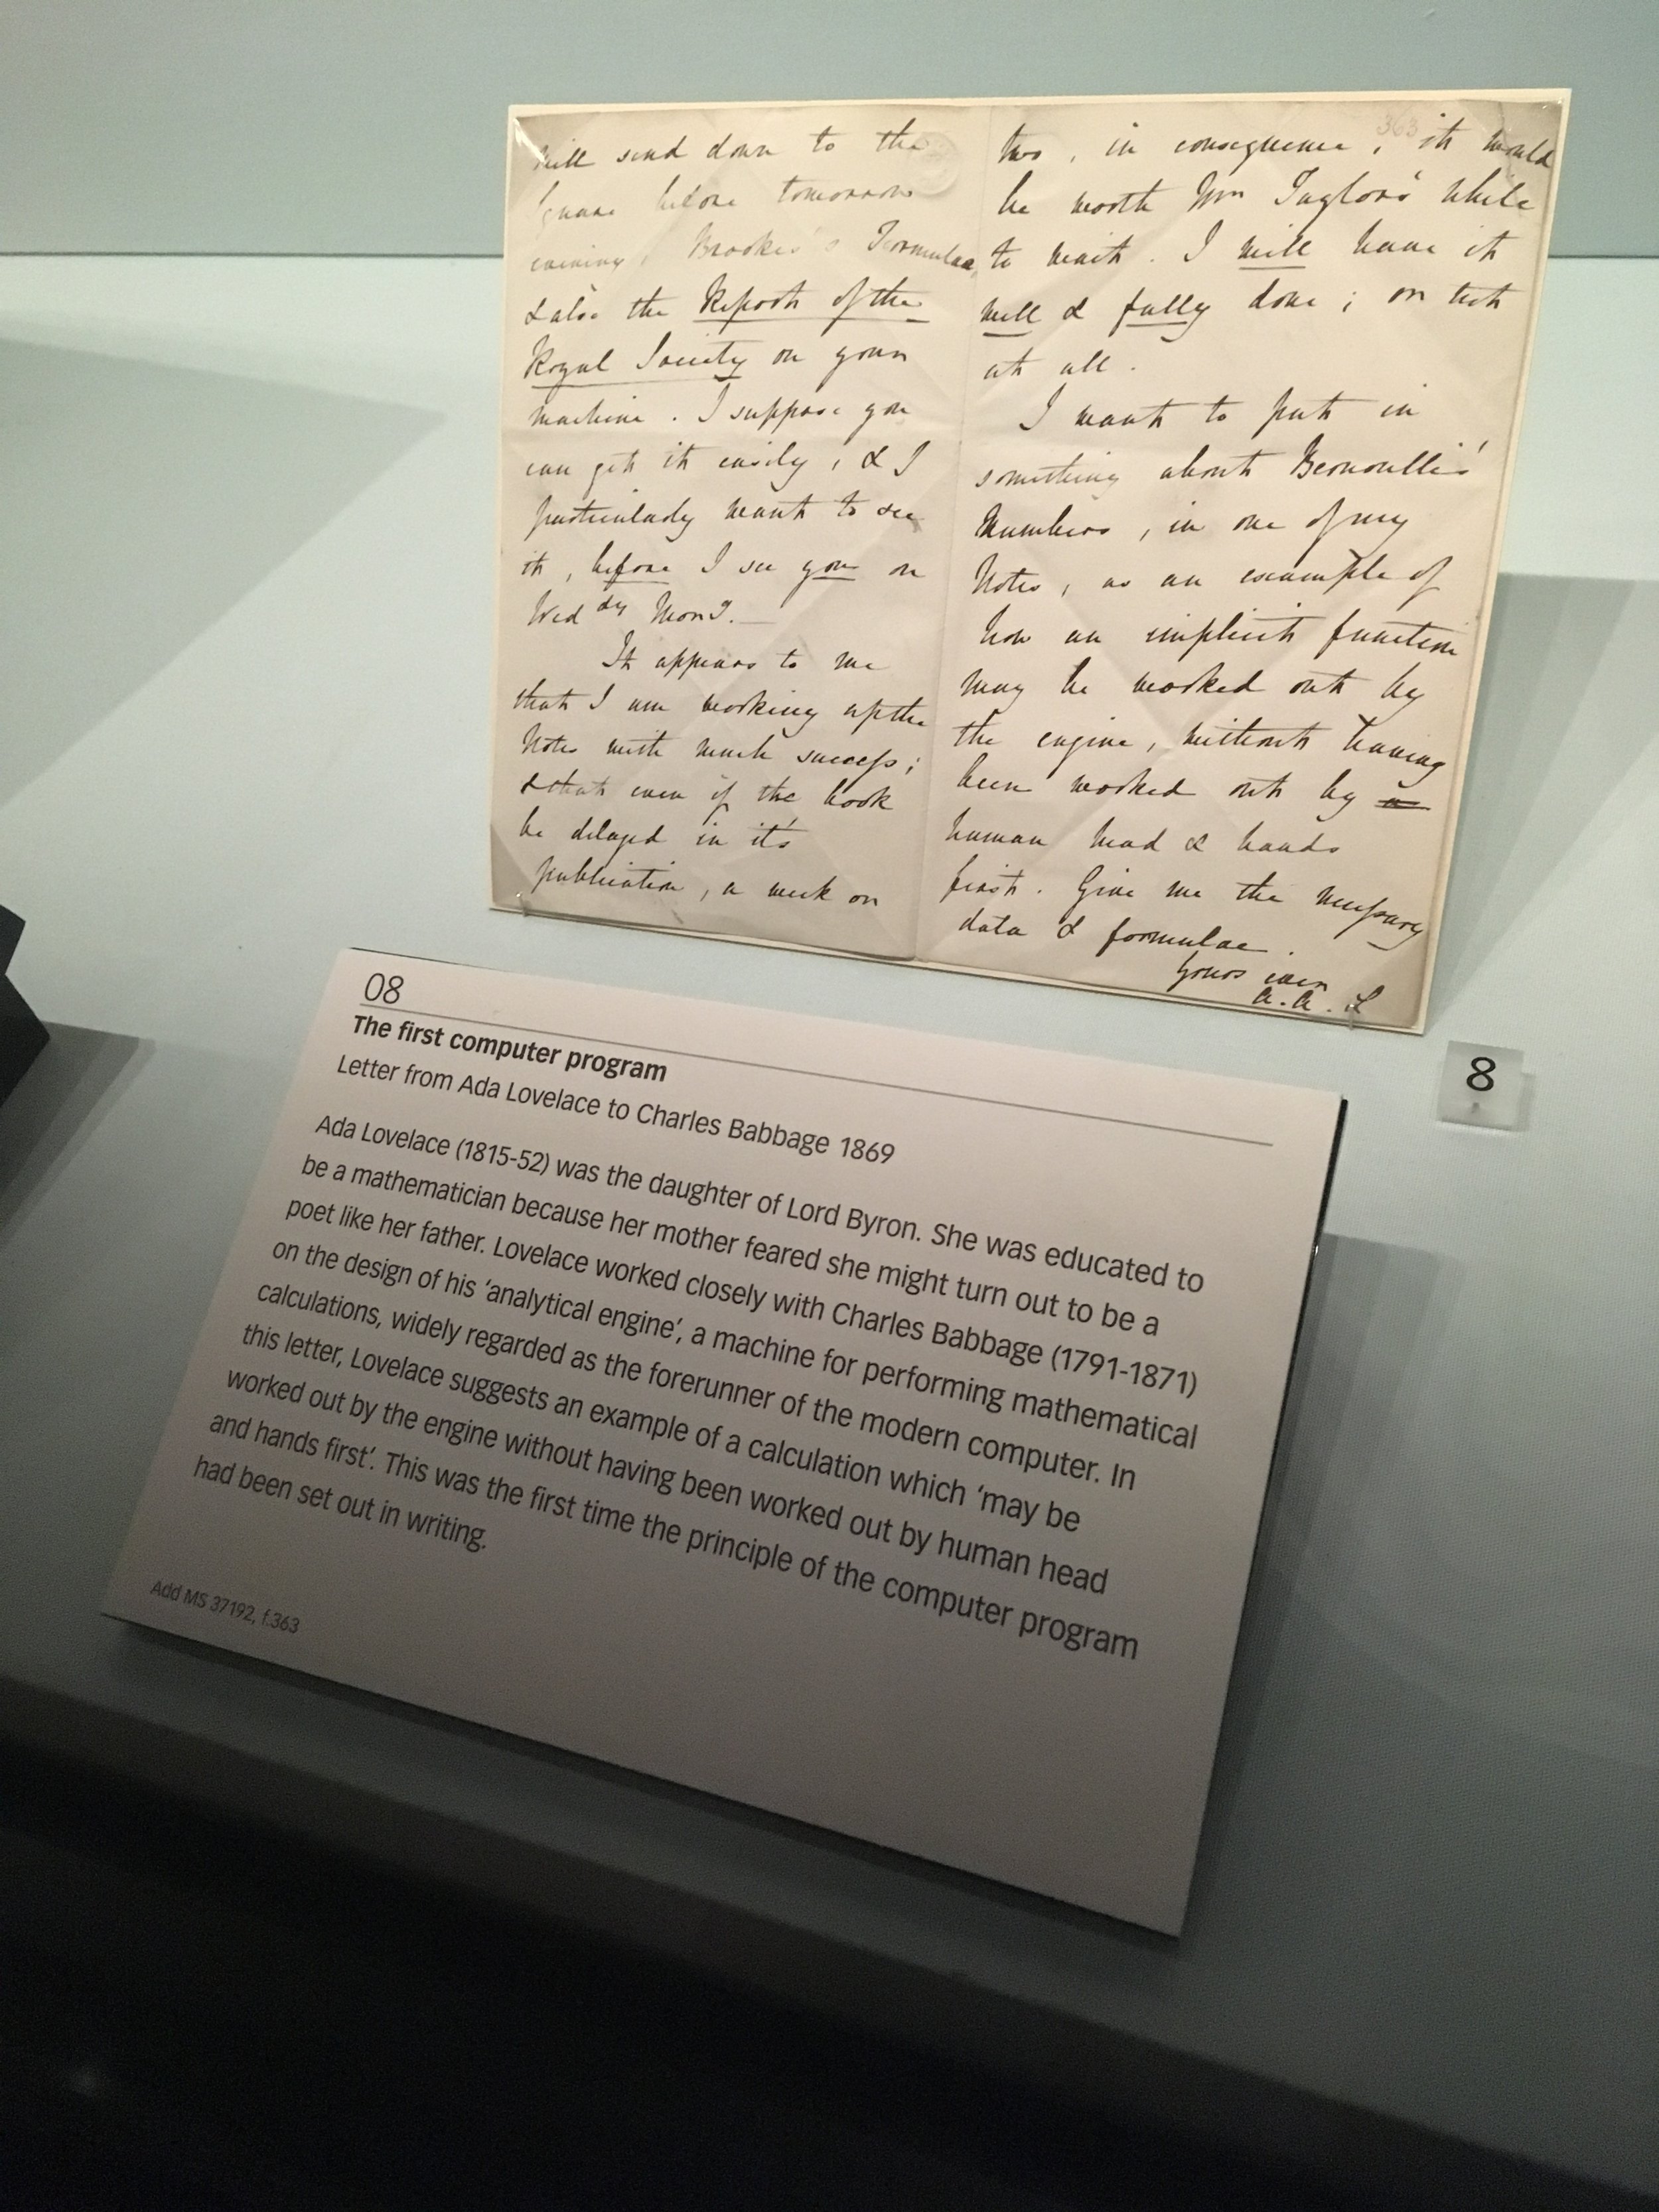 will send down to the
before tomorrow
evening, Brooke's Formulae,
& also the Report of the
Royal Society on your
machine. I suppose you
can get it easily, & I
particularly want to see
it, before I see you on
Wed dy Morng.
It appears to me
that I am working up the
Notes with much success;
& that even if the book
be delayed in it's
publication, a week or
363
two, in consequence, it would
be worth Mr Taylor's while
to wait. I will have it
well & fully done; or not
at all.
I want to put in
something about Bernoulli's
Numbers, in one of my
Notes, as an example of
how an implicit function
may be worked out by
the engine, without having
been worked out by
human head & hands
first. Give me the necessary
data & formulae.
Yours ever
A.A.L
8
08
The first computer program
Letter from Ada Lovelace to Charles Babbage 1869
Ada Lovelace (1815-52) was the daughter of Lord Byron. She was educated to
be a mathematician because her mother feared she might turn out to be a
poet like her father. Lovelace worked closely with Charles Babbage (1791-1871)
on the design of his ‘analytical engine’, a machine for performing mathematical
calculations, widely regarded as the forerunner of the modern computer. In
this letter, Lovelace suggests an example of a calculation which ‘may be
worked out by the engine without having been worked out by human head
and hands first’. This was the first time the principle of the computer program
had been set out in writing.
Add MS 37192, f.363